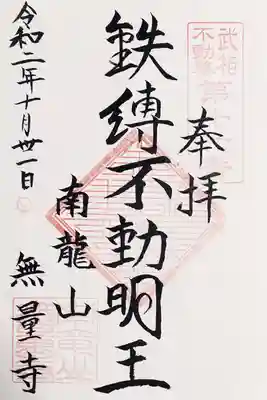 奉拝
武相
不動尊
第
鉄縛不動明王
南龍山
無量寺
令和二年十月丗一日